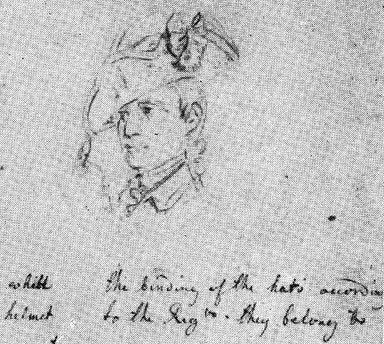 white the binding of the hats acording
helmet to the Reg^ts - they belong to